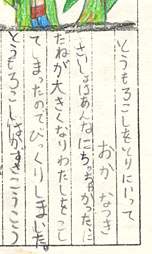 とうもろこしをとりにいって
おか なつき
さいしょはあんなにちいちゃかった
たねが大きくなりわたしをこし
てしまったのでびっくりしました。
とうもろこし